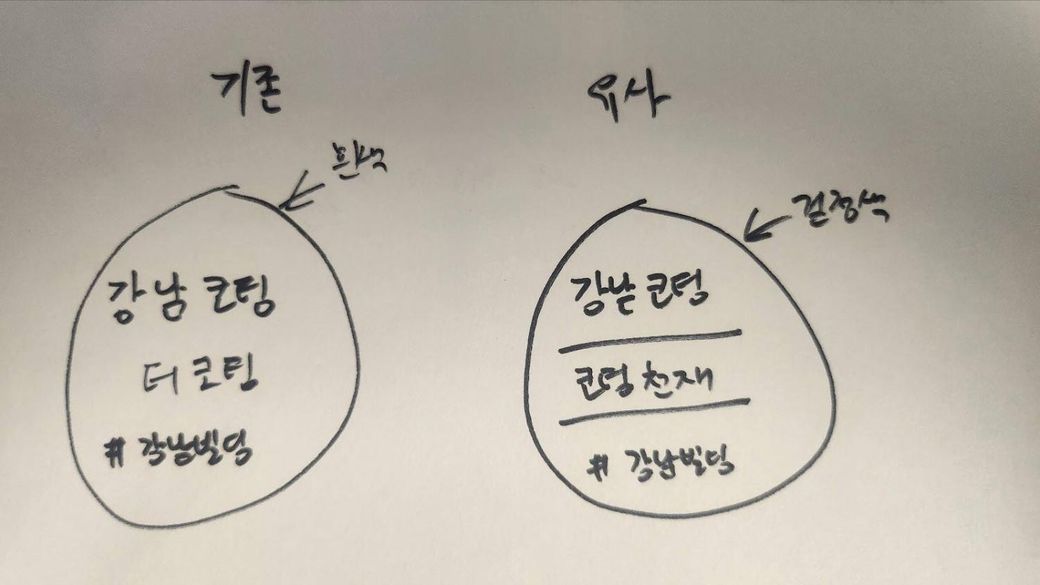 기존
유사
흰색
검정색
강남 코팅
더 코팅
# 강남빌딩
강남 코팅
코팅 천재
# 강남빌딩